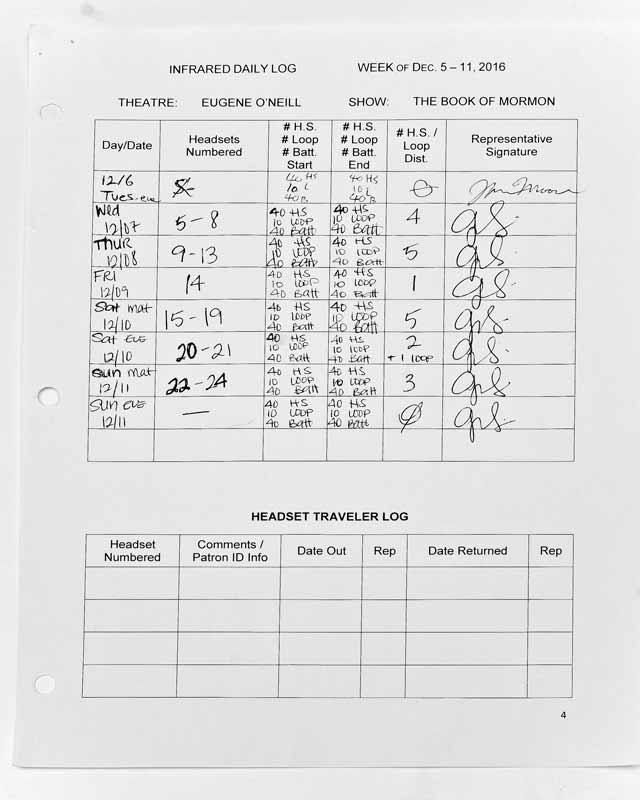 INFRARED DAILY LOG WEEK OF DEC. 5 – 11, 2016
THEATRE: EUGENE O'NEILL SHOW: THE BOOK OF MORMON
Day/Date
Headsets
Numbered
# H.S.
# Loop
# Batt.
Start
# H.S.
# Loop
# Batt.
End
# H.S. /
Loop
Dist.
Representative
Signature
12/6
Tues-eve
40 HS
10 L
40 B
40 HS
10 L
40 B
0
Wed
12/07
5-8
40 HS
10 LOOP
40 Batt
40 HS
10 LOOP
40 Batt
4
THUR
12/08
9-13
40 HS
10 LOOP
40 Batt
40 HS
10 LOOP
40 Batt
5
FRI
12/09
14
40 HS
10 LOOP
40 Batt
40 HS
10 LOOP
40 Batt
1
Sat mat
12/10
15-19
40 HS
10 LOOP
40 Batt
40 HS
10 LOOP
40 Batt
5
Sat EVE
12/10
20-21
40 HS
10 LOOP
40 Batt
40 HS
10 LOOP
40 Batt
2
+ 1 loop
Sun mat
12/11
22-24
40 HS
10 LOOP
40 Batt
40 HS
10 LOOP
40 Batt
3
SUN EVE
12/11
—
40 HS
10 LOOP
40 Batt
40 HS
10 LOOP
40 Batt
0
HEADSET TRAVELER LOG
Headset
Numbered
Comments /
Patron ID Info
Date Out
Rep
Date Returned
Rep
4